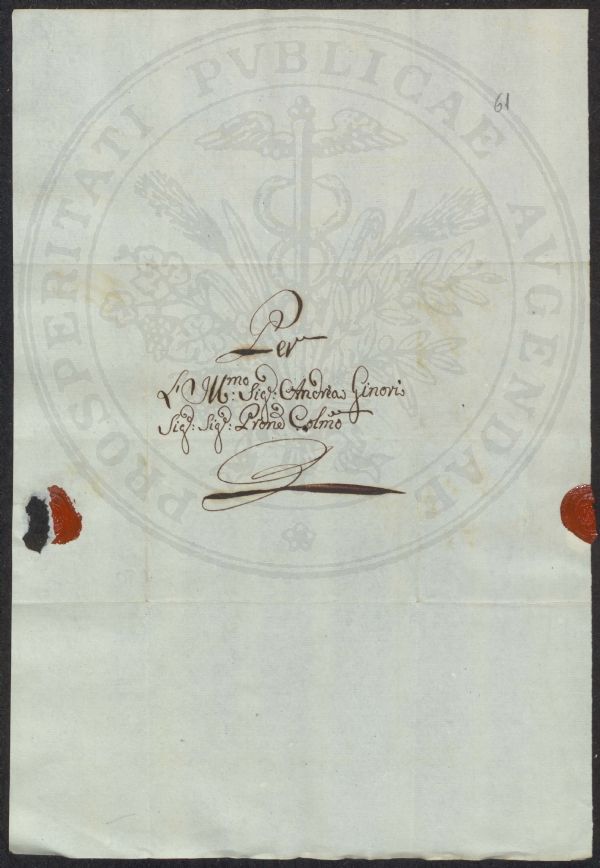 61
PROSPERITATI PVBLICAE AVGENDAE
Per
L'Ill.mo: Sig.r: Andrea Ginori
Sig.r: Sig.r: Prone Colmo